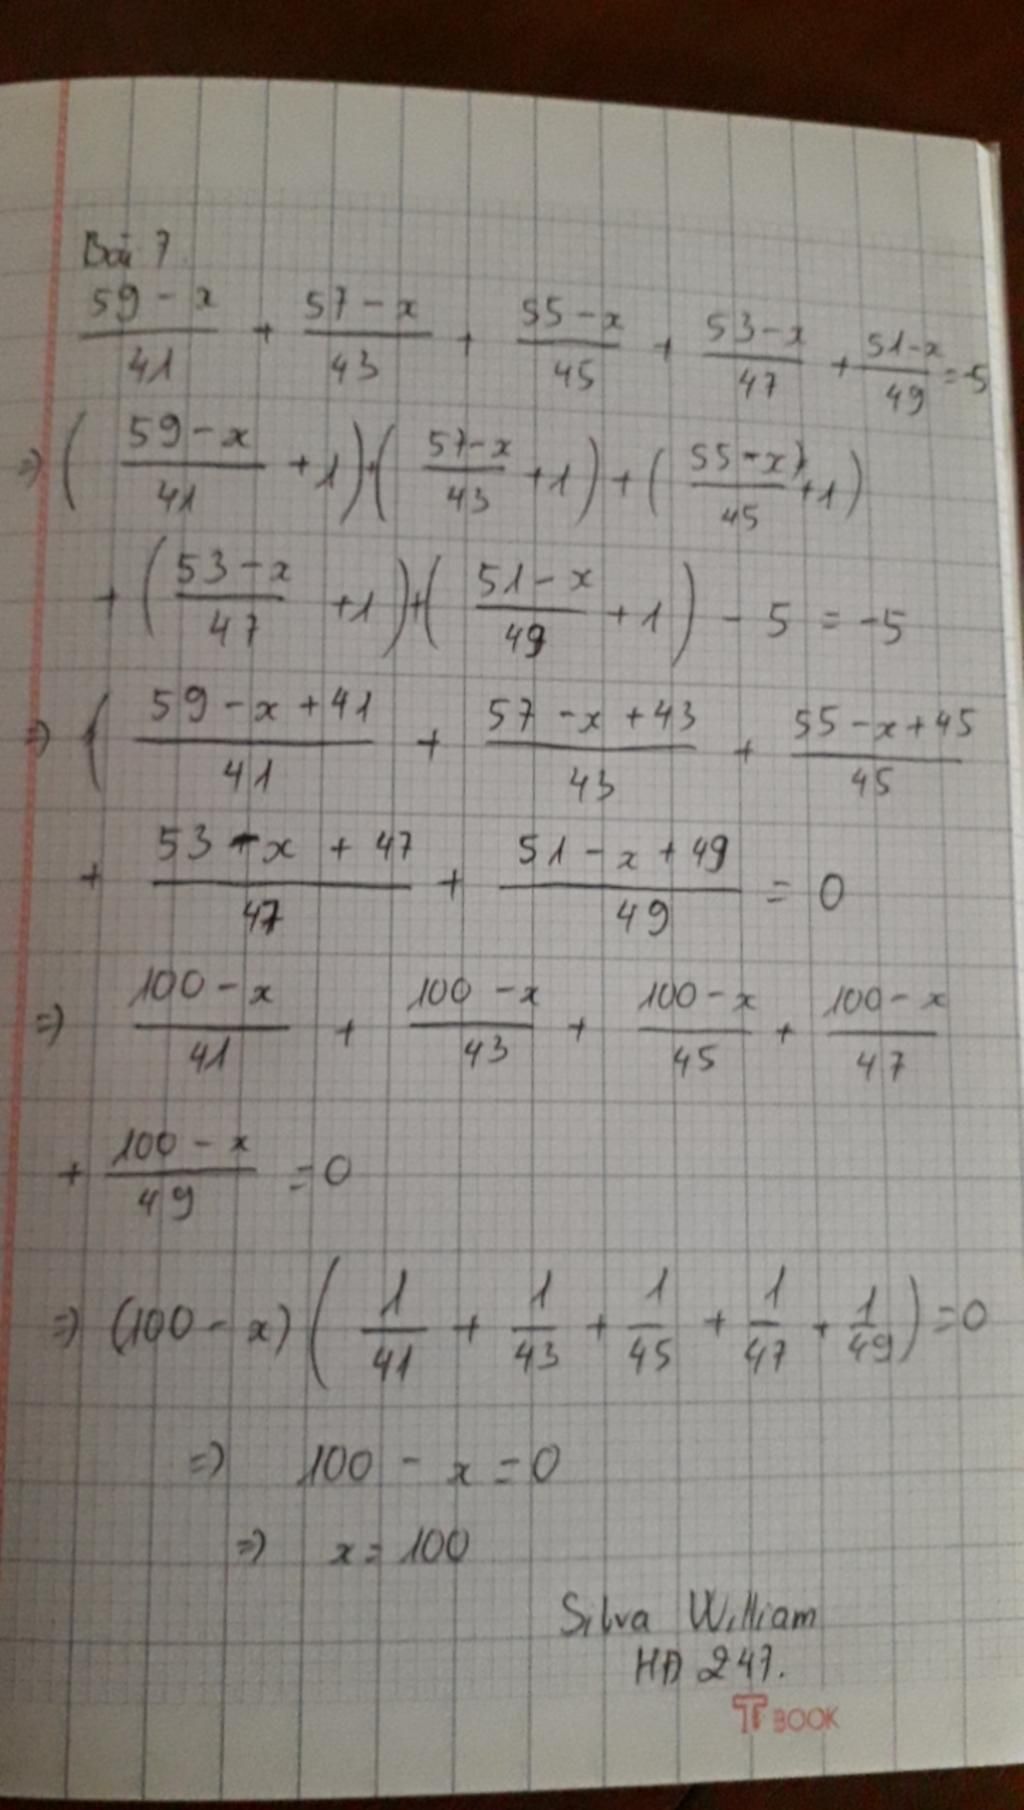 Bài 7
(59 - x)/41 + (57 - x)/43 + (55 - x)/45 + (53 - x)/47 + (51 - x)/49 = -5
=> ((59 - x)/41 + 1) + ((57 - x)/43 + 1) + ((55 - x)/45 + 1)
+ ((53 - x)/47 + 1) + ((51 - x)/49 + 1) - 5 = -5
=> ( (59 - x + 41)/41 + (57 - x + 43)/43 + (55 - x + 45)/45
+ (53 - x + 47)/47 + (51 - x + 49)/49 = 0
=> (100 - x)/41 + (100 - x)/43 + (100 - x)/45 + (100 - x)/47
+ (100 - x)/49 = 0
=> (100 - x) (1/41 + 1/43 + 1/45 + 1/47 + 1/49) = 0
=> 100 - x = 0
=> x = 100
Silva William
HĐ 247.
T BOOK